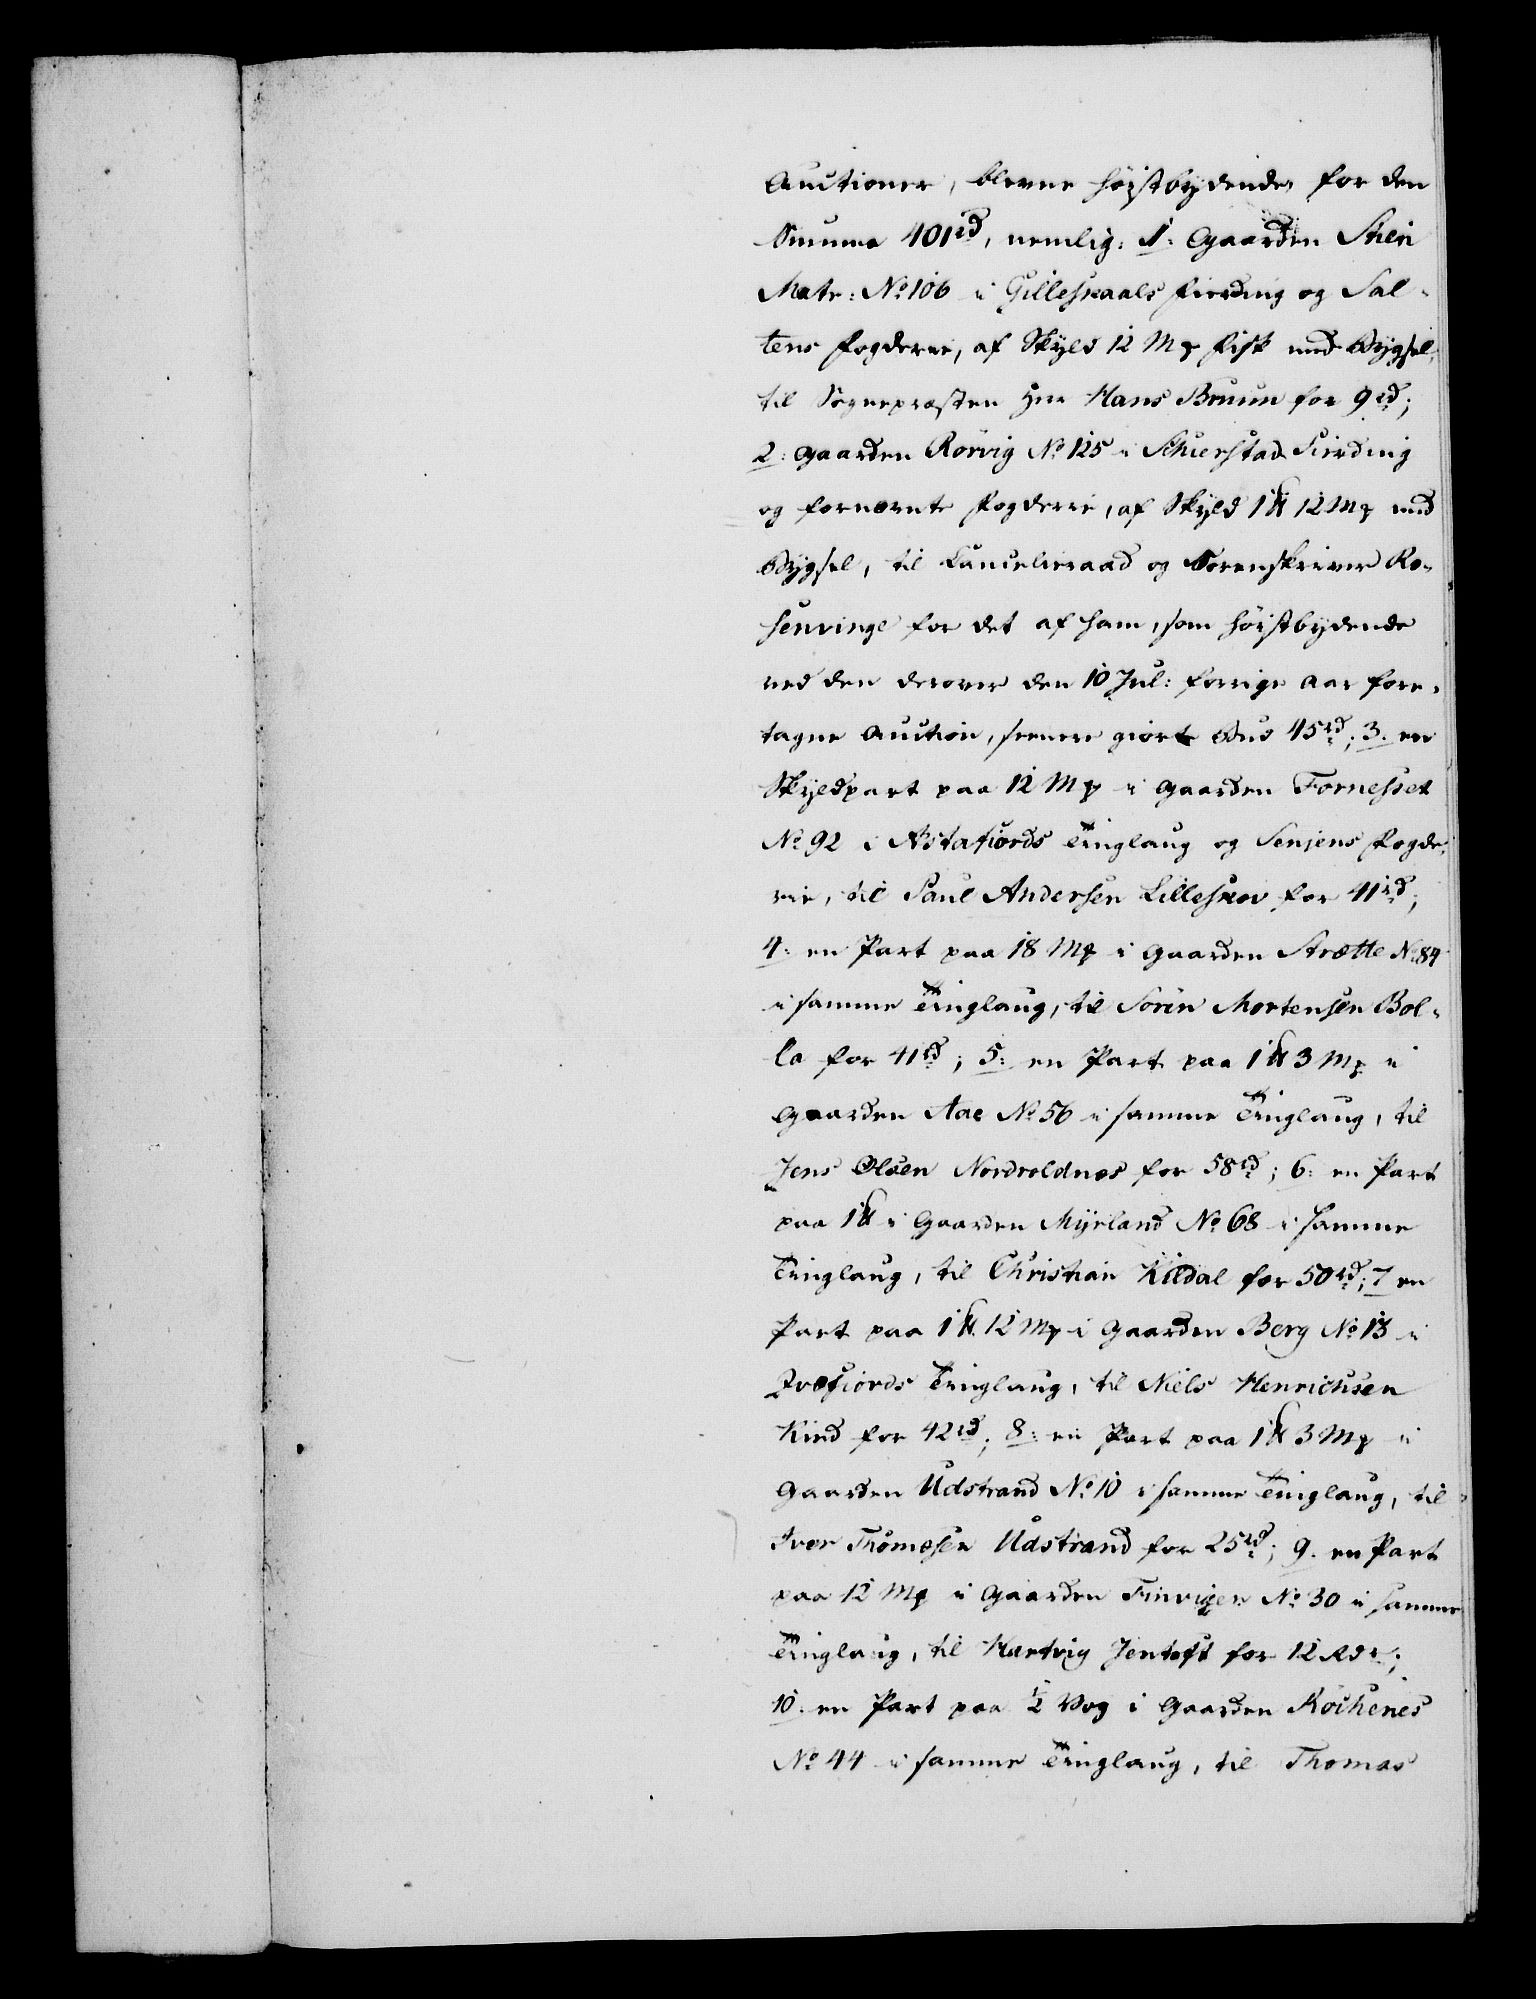 Auctioner, blevne høistbydende, for den
Summa 401 rd, nemlig: 1: Gaarden Steen
Matr: No 106 i Gilleskaals fierding og Sal-
tens fogderie, af Skyld 12 Mk fisk med Bygsel,
til Sognepræsten Her Hans Bruun for 9 rd;
2: Gaarden Rørvig No 125 i Schierstad Fierding
og fornævnte fogderie, af Skyld 1 ℔ 12 Mk med
Bygsel, til Cancelieraad og Sorenskriver Ro-
senvinge for det af ham, som høistbydende
ved den derover den 10 Jul: forrige Aar fore-
tagne Auction, senere giorte Bud 45 rd; 3. en
Skyldpart paa 12 Mk i Gaarden Fornesset
No 92 i Astafiords Tinglaug og Senjens fogde-
rie, til Paul Andersen Lilleskov for 41 rd;
4: en Part paa 18 Mk i Gaarden Strætte No 84
i samme Tinglaug, til Sören Mortensen Bol-
la for 41 rd; 5: en Part paa 1 ℔ 3 Mk i
Gaarden Aae No 56 i samme Tinglaug, til
Jens Olsen Nordroldnes for 58 rd; 6: en Part
paa 1 ℔ i Gaarden Myrland No 68 i samme
Tinglaug, til Christian Kildal for 50 rd; 7 en
Part paa 1 ℔ 12 Mk i Gaarden Berg No 13 i
Qvæfiords Tinglaug, til Niels Henrichsen
Kind for 42 rd; 8: en Part paa 1 ℔ 3 Mk i
Gaarden Udstrand No 10 i samme Tinglaug, til
Iver Thomesen Udstrand for 25 rd; 9. en Part
paa 12 Mk i Gaarden Finvigen No 30 i samme
Tinglaug, til Hartvig Jentoft for 12 Rdr;
10. en Part paa ½ Vog i Gaarden Rochenes
No 44 i samme Tinglaug, til Thomas